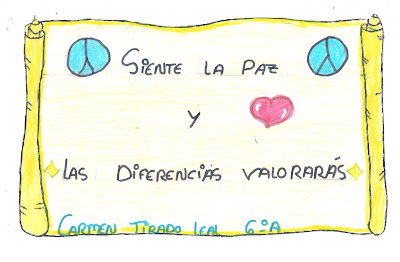 SIENTE LA PAZ
Y
LAS DIFERENCIAS VALORARÁS
CARMEN TIRADO ICAL 6ºA